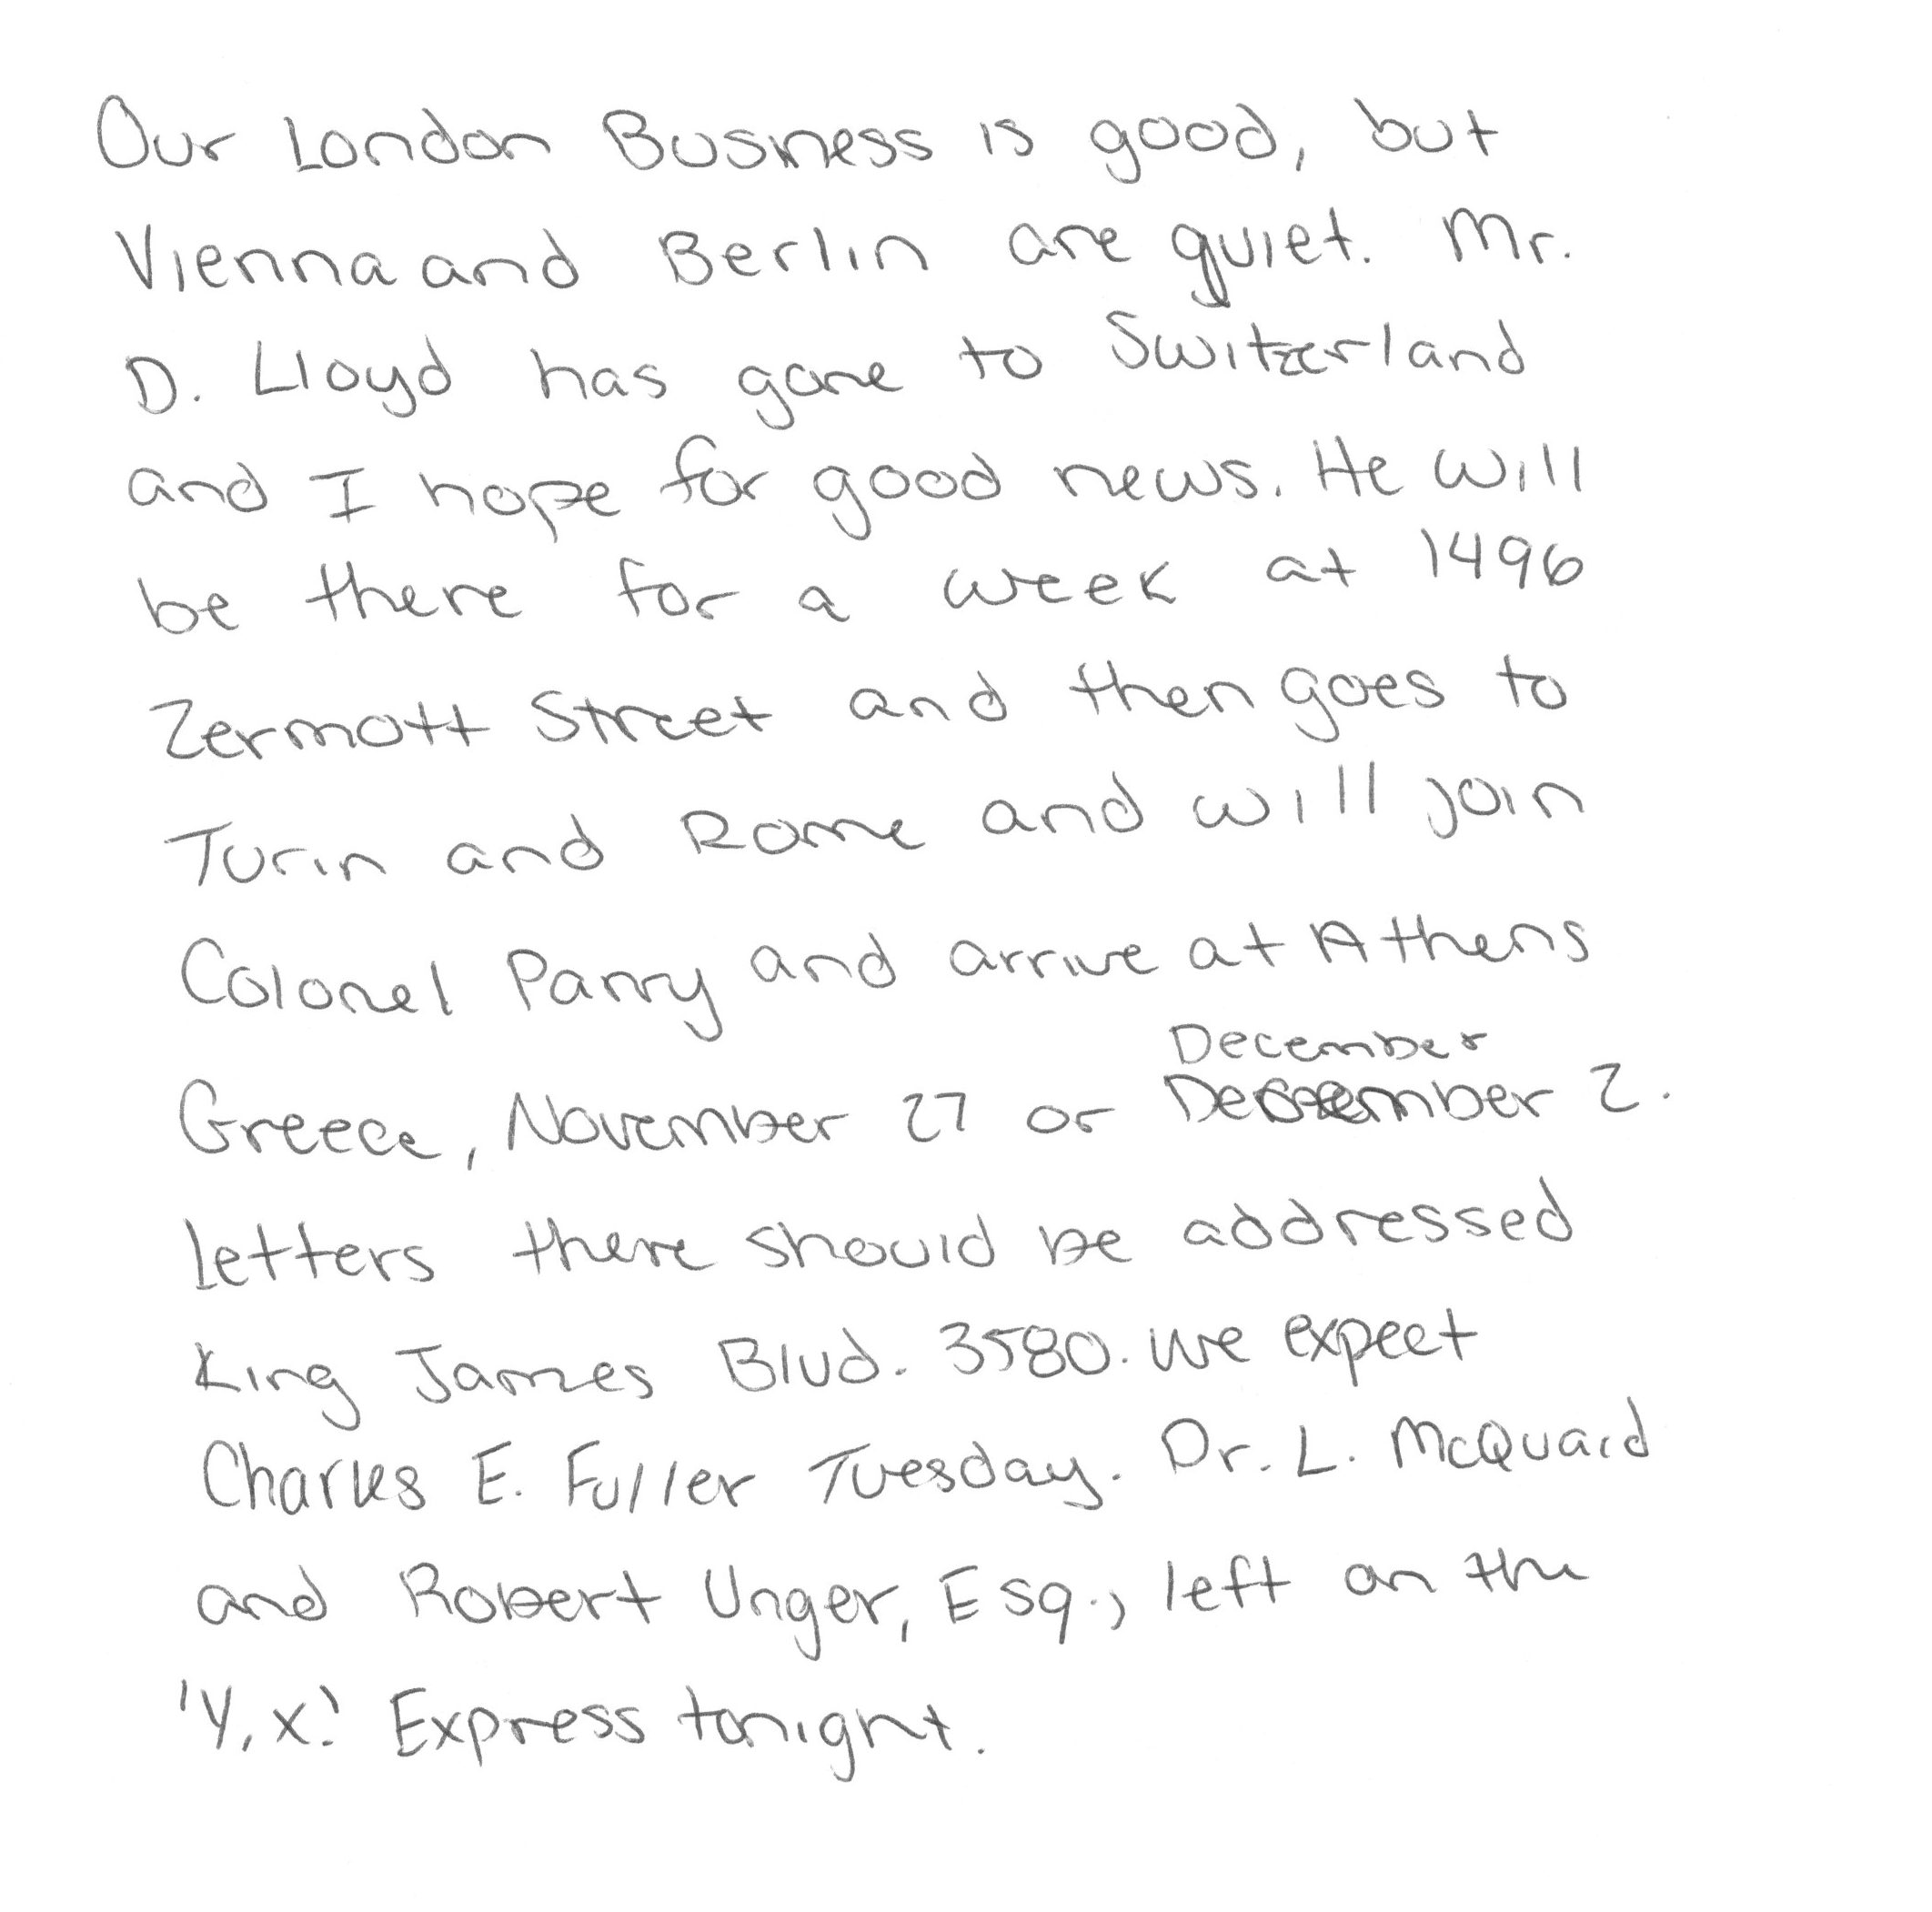 Our London Business is good, but
Vienna and Berlin are quiet. Mr.
D. Lloyd has gone to Switzerland
and I hope for good news. He will
be there for a week at 1496
Zermott Street and then goes to
Turin and Rome and will join
Colonel Parry and arrive at Athens
December
Greece, November 27 or December 2.
Letters there should be addressed
King James Blvd. 3580. We expect
Charles E. Fuller Tuesday. Dr. L. McQuaid
and Robert Unger, Esq., left on the
'Y, X.' Express tonight.